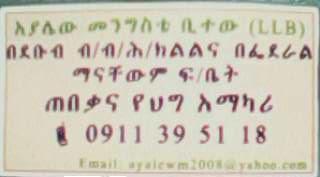 አያሌው መንግስቴ ቢተው (LLB)
በደቡብ ብ/ብ/ሕ/ክልልና በፌደራል
ማናቸውም ፍ/ቤት
ጠበቃና የህግ አማካሪ
0911 39 51 18
Email: ayalewm2008@yahoo.com